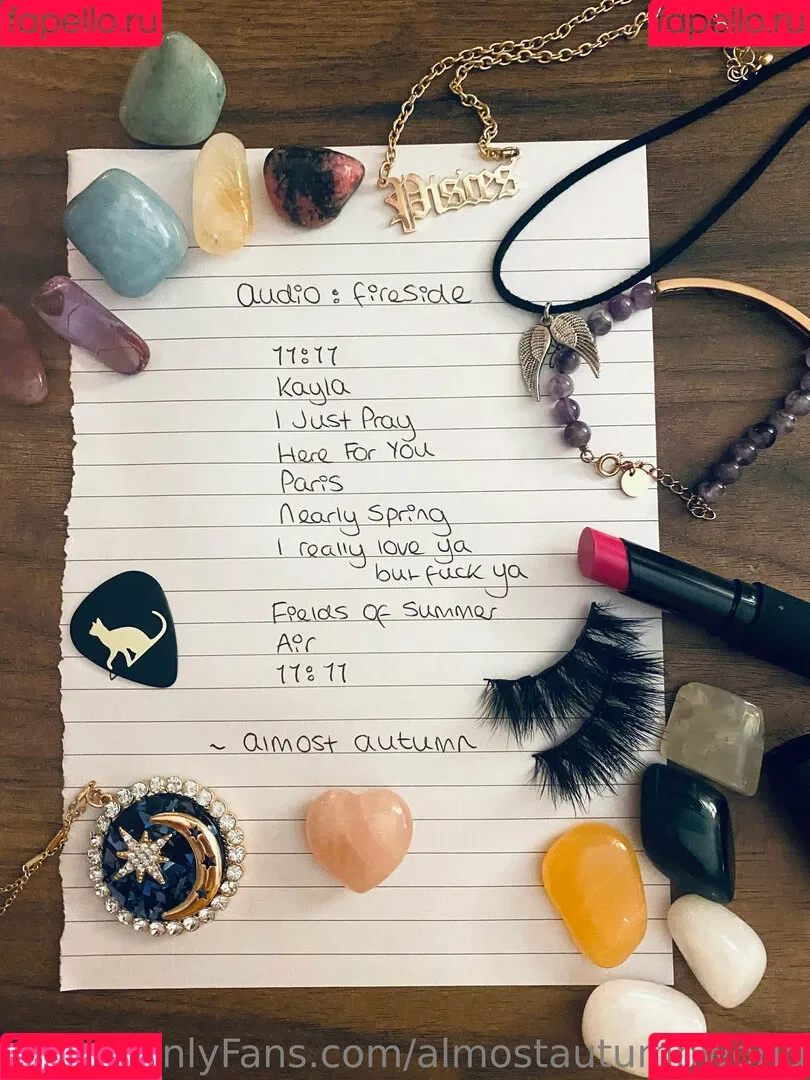 fapello.ru
fapello.ru
Pisces
audio : fireside
11:11
Kayla
I Just Pray
Here For You
Paris
Nearly Spring
I really love ya
but fuck ya
Fields of Summer
Air
11:11
~ almost autumn
fapello.ru
nlyFans.com/almostautu
fapello.ru